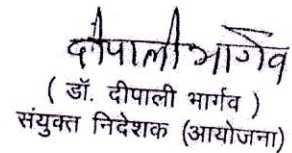 दीपाली भार्गव
( डॉ. दीपाली भार्गव )
संयुक्त निदेशक (आयोजना)